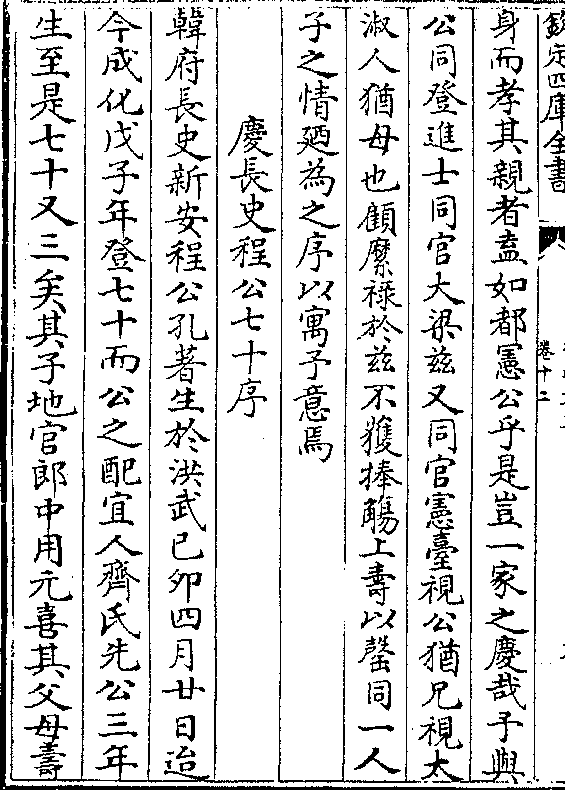 欽定四庫全書
卷十二
身而孝其親者盍如都憲公乎是豈一家之慶哉予與
公同登進士同官大梁兹又同官憲臺視公猶兄視太
淑人猶母也顧縻祿於兹不獲捧觴上壽以罄同一人
子之情廼為之序以寓予意焉
慶長史程公七十序
韓府長史新安程公孔著生於洪武己卯四月廿日迨
今成化戊子年登七十而公之配宜人齊氏先公三年
生至是七十又三矣其子地官郎中用元喜其父母壽